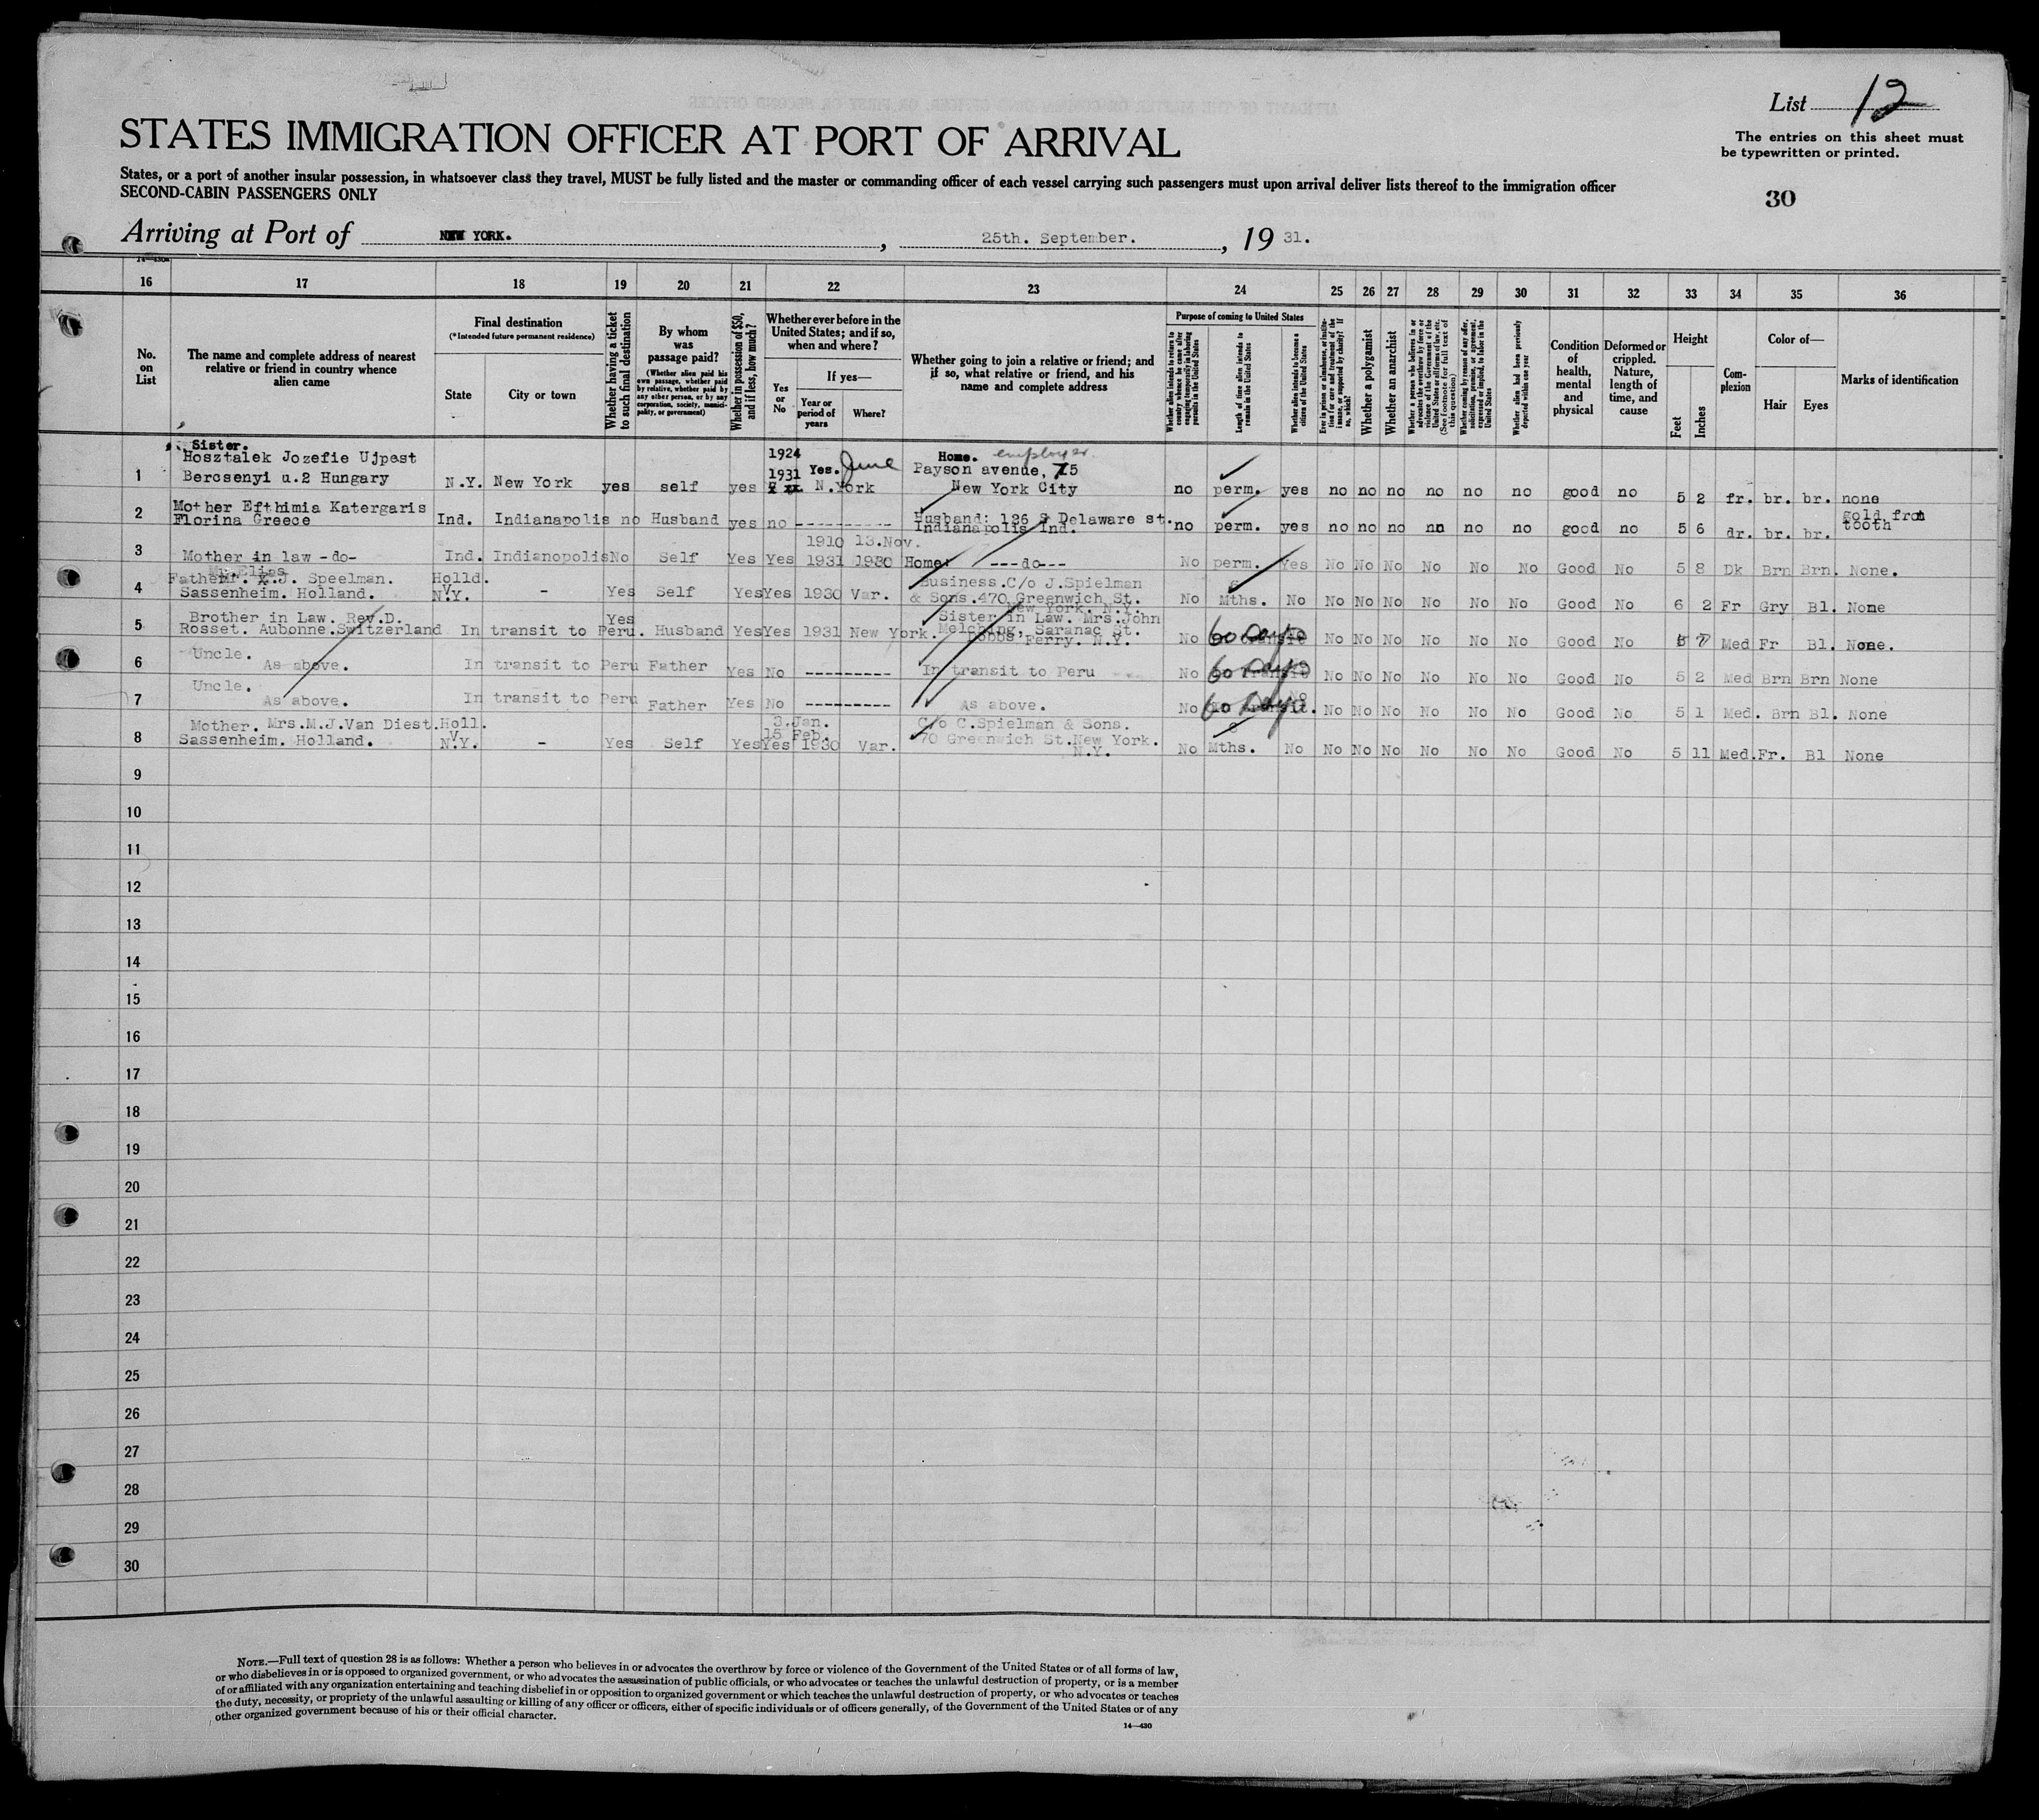 List 12
The entries on this sheet must
be typewritten or printed.
STATES IMMIGRATION OFFICER AT PORT OF ARRIVAL
States, or a port of another insular possession, in whatsoever class they travel, MUST be fully listed and the master or commanding officer of each vessel carrying such passengers must upon arrival deliver lists thereof to the immigration officer
SECOND-CABIN PASSENGERS ONLY
30
Arriving at Port of NEW YORK. , 25th. September. , 19 31.
16 17 18 19 20 21 22 23 24 25 26 27 28 29 30 31 32 33 34 35 36
No. on List
The name and complete address of nearest relative or friend in country whence alien came
Final destination
(*Intended future permanent residence)
State
City or town
Whether having a ticket to such final destination
By whom was passage paid?
(Whether alien paid his own passage, whether paid by relative, whether paid by any other person, or by any corporation, society, municipality, or government)
Whether in possession of $50, and if less, how much?
Whether ever before in the United States; and if so, when and where?
Yes or No
If yes—
Year or period of years
Where?
Whether going to join a relative or friend; and if so, what relative or friend, and his name and complete address
Purpose of coming to United States
Whether alien intends to return to country whence he came after engaging temporarily in laboring pursuits in the United States
Length of time alien intends to remain in the United States
Whether alien intends to become a citizen of the United States
Ever in prison or almshouse, or institution for care and treatment of the insane, or supported by charity? If so, which?
Whether a polygamist
Whether an anarchist
Whether a person who believes in or advocates the overthrow by force or violence of the Government of the United States or all forms of law, etc. (See footnote for full text of this question)
Whether coming by reason of any offer, solicitation, promise, or agreement, expressed or implied, to labor in the United States
Whether alien had been previously deported within one year
Condition of health, mental and physical
Deformed or crippled. Nature, length of time, and cause
Height
Feet
Inches
Complexion
Color of—
Hair
Eyes
Marks of identification
1 Sister.
Hosztalek Jozefie Ujpest
Bercsenyi u.2 Hungary N.Y. New York yes self yes 1924 1931 Yes. June N.York Home. employer. Payson avenue, 75 New York City no perm. yes no no no no no no good no 5 2 fr. br. br. none
2 Mother Efthimia Katergaris
Florina Greece Ind. Indianapolis no Husband yes no ---------- Husband: 126 S Delaware st. Indianapolis Ind. no perm. yes no no no no no no good no 5 6 dr. br. br. gold front tooth
3 Mother in law -do- Ind. Indianopolis No Self Yes Yes 1910 1931 13.Nov. 1930 Home ---do--- No perm. Yes No No No No No No Good No 5 8 Dk Brn Brn. None.
4 Father Mr. Elias J. Speelman.
Sassenheim. Holland. Holld. V N.Y. - Yes Self Yes Yes 1930 Var. Business.C/o J.Spielman & Sons.470 Greenwich St. New York. N.Y. No 6 Mths. No No No No No No No Good No 6 2 Fr Gry Bl. None
5 Brother in Law. Rev.D.
Rosset. Aubonne.Switzerland In transit to Peru. Yes Husband Yes Yes 1931 New York. Sister in Law. Mrs.John Melching, Saranac St. Dobbs Ferry. N.Y. No 60 Days No No No No No No Good No 5 7 Med Fr Bl. None.
6 Uncle.
As above. In transit to Peru Father Yes No --------- In transit to Peru No 60 Days No No No No No No Good No 5 2 Med Brn Brn None
7 Uncle.
As above. In transit to Peru Father Yes No --------- As above. No 60 Days No No No No No No No Good No 5 1 Med. Brn Bl. None
8 Mother. Mrs.M.J.Van Diest.
Sassenheim. Holland. Holl. V N.Y. - Yes Self Yes Yes 3.Jan. 15 Feb. 1930 Var. C/o C.Spielman & Sons. 70 Greenwich St.New York. N.Y. No Mths. No No No No No No No Good No 5 11 Med. Fr. Bl None
9
10
11
12
13
14
15
16
17
18
19
20
21
22
23
24
25
26
27
28
29
30
NOTE.—Full text of question 28 is as follows: Whether a person who believes in or advocates the overthrow by force or violence of the Government of the United States or of all forms of law,
or who disbelieves in or is opposed to organized government, or who advocates the assassination of public officials, or who advocates or teaches the unlawful destruction of property, or is a member
of or affiliated with any organization entertaining and teaching disbelief in or opposition to organized government or which teaches the unlawful destruction of property, or who advocates or teaches
the duty, necessity, or propriety of the unlawful assaulting or killing of any officer or officers, either of specific individuals or of officers generally, of the Government of the United States or of any
other organized government because of his or their official character.
14—430